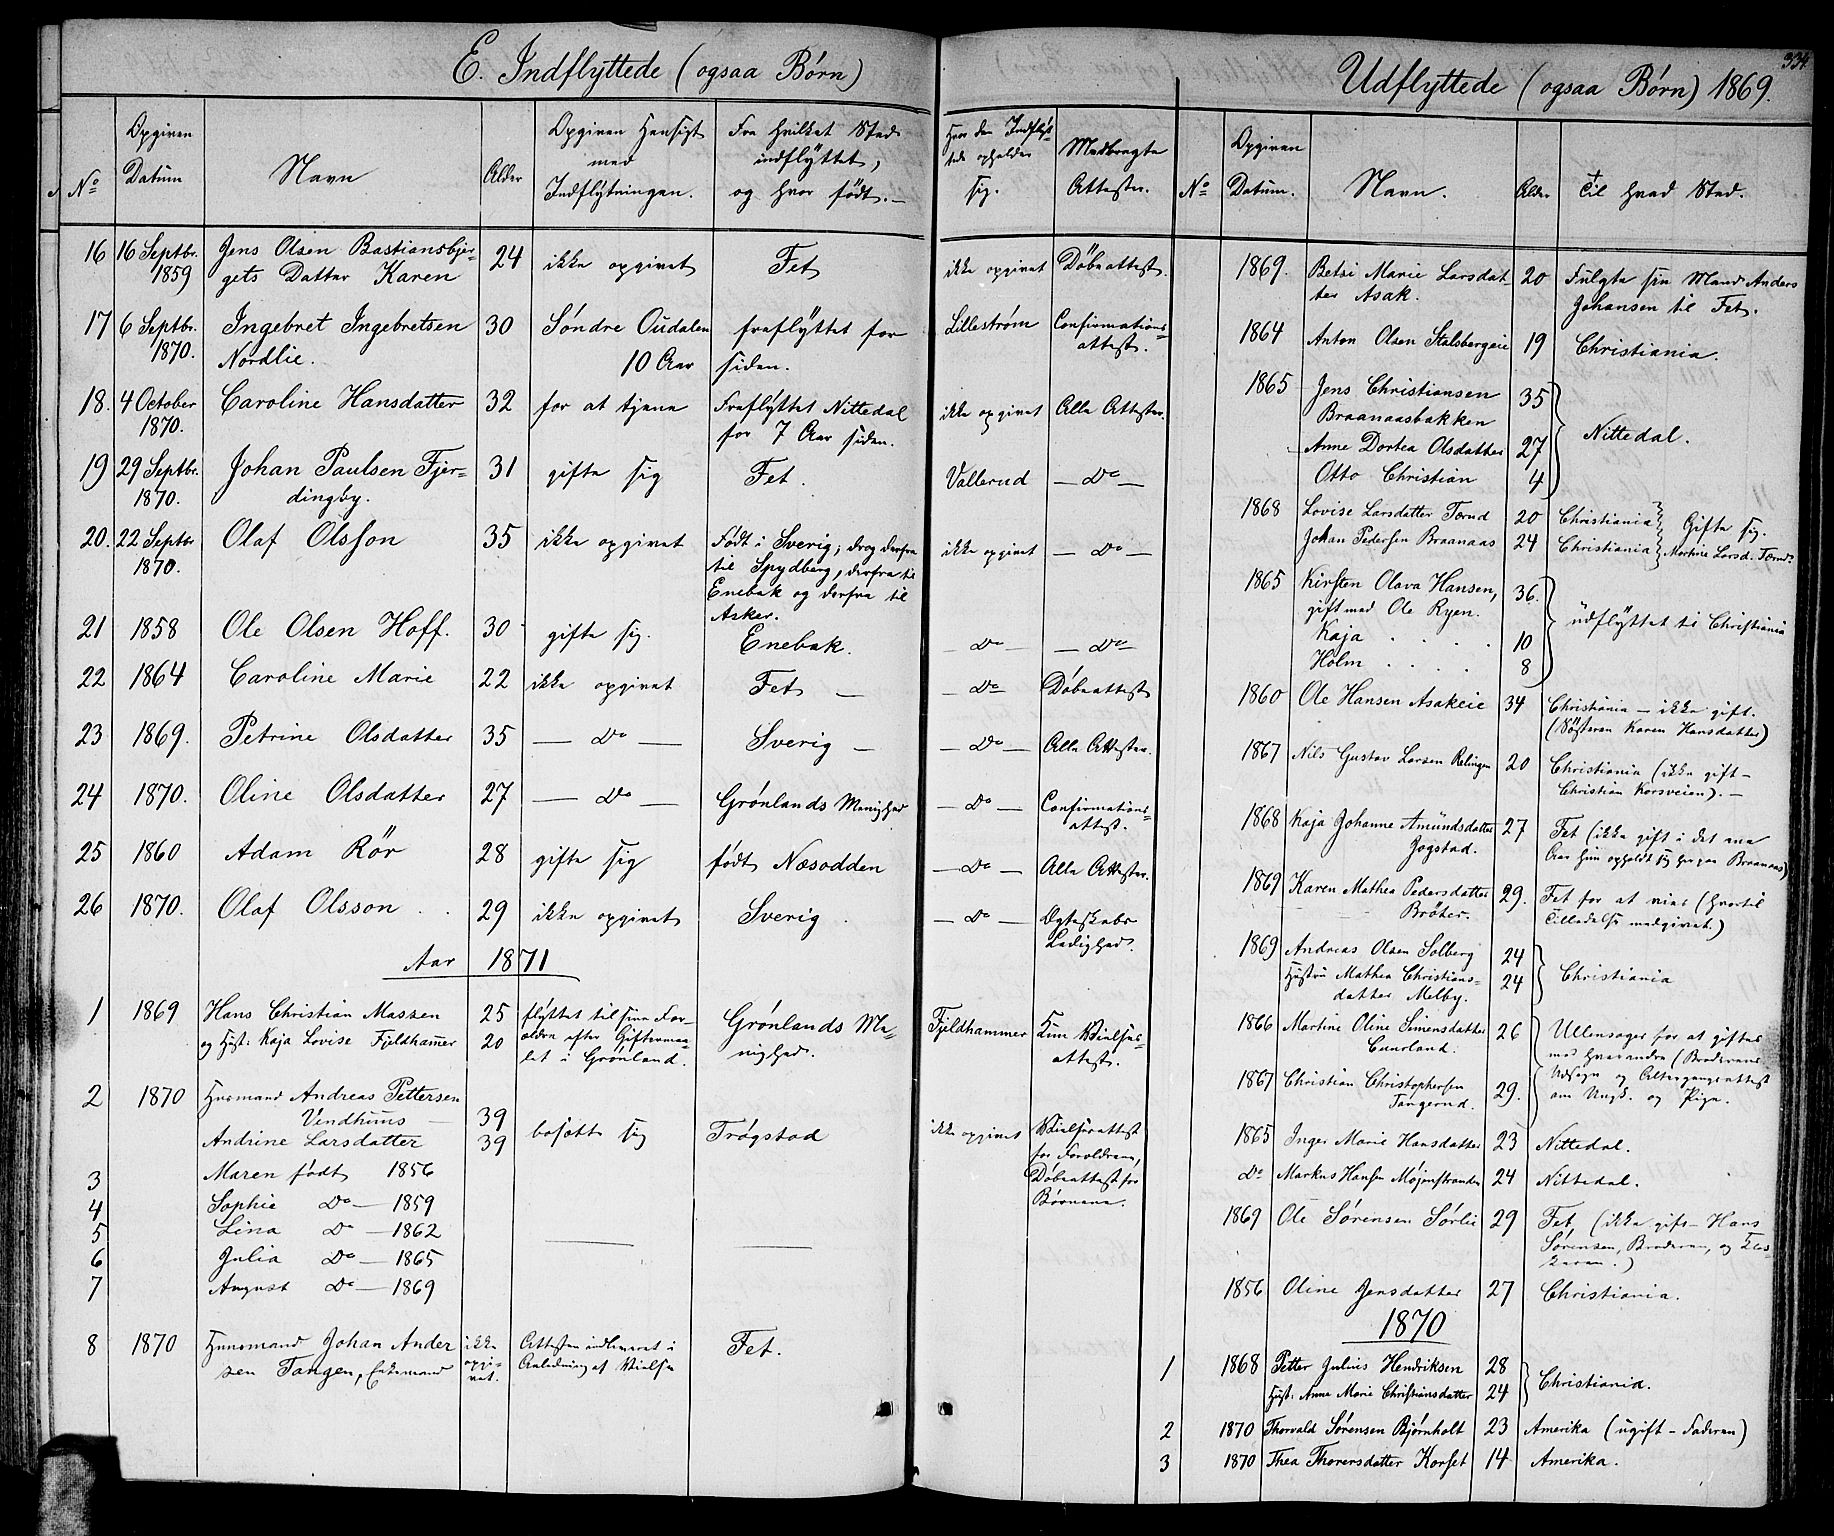 E. Indflyttede (ogsaa Børn)
No
Opgiven Datum
Navn
Alder
Opgiven Hensigt med Indflytningen.
Fra hvilket Sted indflyttet, og hvor født.
Hvor den Indflyttede opholder sig.
Medbragte Attester.
16 16 Septbr. 1859 Jens Olsen Bastiansbjergets Datter Karen 24 ikke opgivet Fet ikke opgivet Döbeattest.
17 6 Septbr. 1870. Ingebret Ingebretsen Nordlie. 30 Søndre Oudalen 10 Aar fraflyttet for siden. Lillestrøm Confirmationsattest.
18. 4 October 1870. Caroline Hansdatter 32 for at tjene Fraflyttet Nittedal for 7 Aar siden. ikke opgivet Alle Attester.
19 29 Septbr. 1870. Johan Paulsen Fjerdingby. 31 gifte sig Fet. Vallerud — Do —
20. 22 Septbr 1870. Olaf Olsson 35 ikke opgivet Født i Sverig; drog derfra til Spydberg, derfra til Enebak og derfra til Asker. ikke opgivet — Do —
21 1858 Ole Olsen Hoff. 30 gifte sig. Enebak. — Do — — Do —
22 1864 Caroline Marie 22 ikke opgivet Fet — — Do — Döbeattest
23 1869. Petrine Olsdatter 35 — Do — Sverig — — Do — Alle Attester.
24 1870. Oline Olsdatter 27 — Do — Grønlands Menighed — Do — Confirmationsattest.
25 1860 Adam Rör 28 gifte sig født Næsodden — Do — Alle Attester.
26 1870. Olaf Olsson 29 ikke opgivet Sverig. — Do — Ægteskabs Ledighed.
Aar 1871
1 1869 Hans Christian Massen 25 og Hust: Kaja Lovise Fjeldhamer 20 flyttet til sine Forældre efter Giftermaalet i Grønland. Grønlands Menighed. Fjeldhammer Kun Vielsesattest.
2 1870 Husmand Andreas Pettersen Vendhums — 39
Andrine Larsdatter 39 bosætte sig Trøgstad ikke opgivet Vielsesattest for Forældrene, Döbeattest for Børnene.
3 Maren født 1856
4 Sophie Do — 1859
5 Lina Do — 1862
6 Julia Do — 1865
7 August Do — 1869
8 1870 Huusmand Johan Andersen Tangen, Enkemand ikke opgivet. Attesten indleveret i Anledning af Vielse Fet.
334
Udflyttede (ogsaa Børn) 1869.
No
Opgiven Datum.
Navn.
Alder
Til hvad Sted.
1869. Betsi Marie Larsdatter Asak. 20 Fulgte sin Mand Anders Johansen til Fet.
1864 Anton Olsen Stalsbergeie 19 Christiania.
1865 Jens Christiansen Braanaasbakken 35
Anne Dortea Olsdatter 27
Otto Christian 4
Nittedal.
1868 Lovise Larsdatter Tærud 20 Christiania Gifte sig.
Johan Pedersen Braanaas 24 Christiania Martine Larsd. Tærud.
1865 Kirsten Olava Hansen, gift med Ole Ryen. 36.
Kaja 10
Holm 8
udflyttet ti Christiania
1860 Ole Hansen Asakeie 34 Christiania — ikke gift. (Søsteren Karen Hansdatter)
1867 Nils Gustav Larsen Relingen 20 Christiania (ikke gift — Christian Korsveien). —
1868 Kaja Johanne Amundsdatter Jogstad. 27 Fet (ikke gift i det ene Aar hun opholdt sig her paa Braanaas)
1869 Karen Mathea Pedersdatter Bröter. 29. Fet for at vies (hvortil Tilladelse medgivet.)
1869 Andreas Olsen Solberg 24
Hustru Mathea Christiansdatter Melby. 24
Christiania
1866 Martine Oline Simensdatter Cuurland. 26
1867 Christian Christophersen Tangerud. 29.
Ullensager for at giftes med hverandre (Broderens Udsagn og Altergangsattest om Ungk. og Pige.
1865 Inger Marie Hansdatter 23 Nittedal.
Do Markus Hansen Møjenstranden 24 Nittedal.
1869 Ole Sørensen Sørlie 29 Fet, (ikke gift — Hans Sørensen, Broderen, og
1856 Oline Jensdatter 27 Christiania.
1870
1 1868 Petter Julius Hendriksen 28
Hust: Anne Marie Christiansdatter 24
Christiania.
2 1870 Thorvald Sørensen Bjørnholt 23 Amerika (ugift — Faderen)
3 1870 Thea Thorersdatter Korset 14 Amerika.